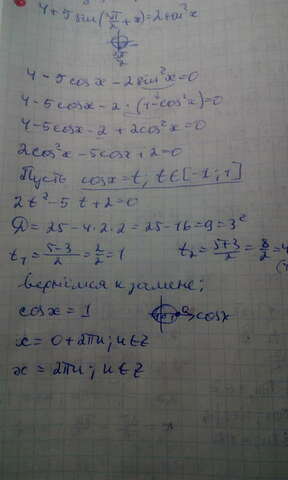 4+5 sin(3π/2+x)=2sin²x
3π/2
4-5cosx-2sin²x=0
4-5cosx-2·(1-cos²x)=0
4-5cosx-2+2cos²x=0
2cos²x-5cosx+2=0
Пусть cosx=t; t∈[-1;1]
2t²-5t+2=0
D=25-4·2·2=25-16=9=3²
t₁=5-3/2=2/2=1 t₂=5+3/2=8/2=4
вернёмся к замене;
cosx=1 cosx
x=0+2πn; n∈Z
x=2πn; n∈Z